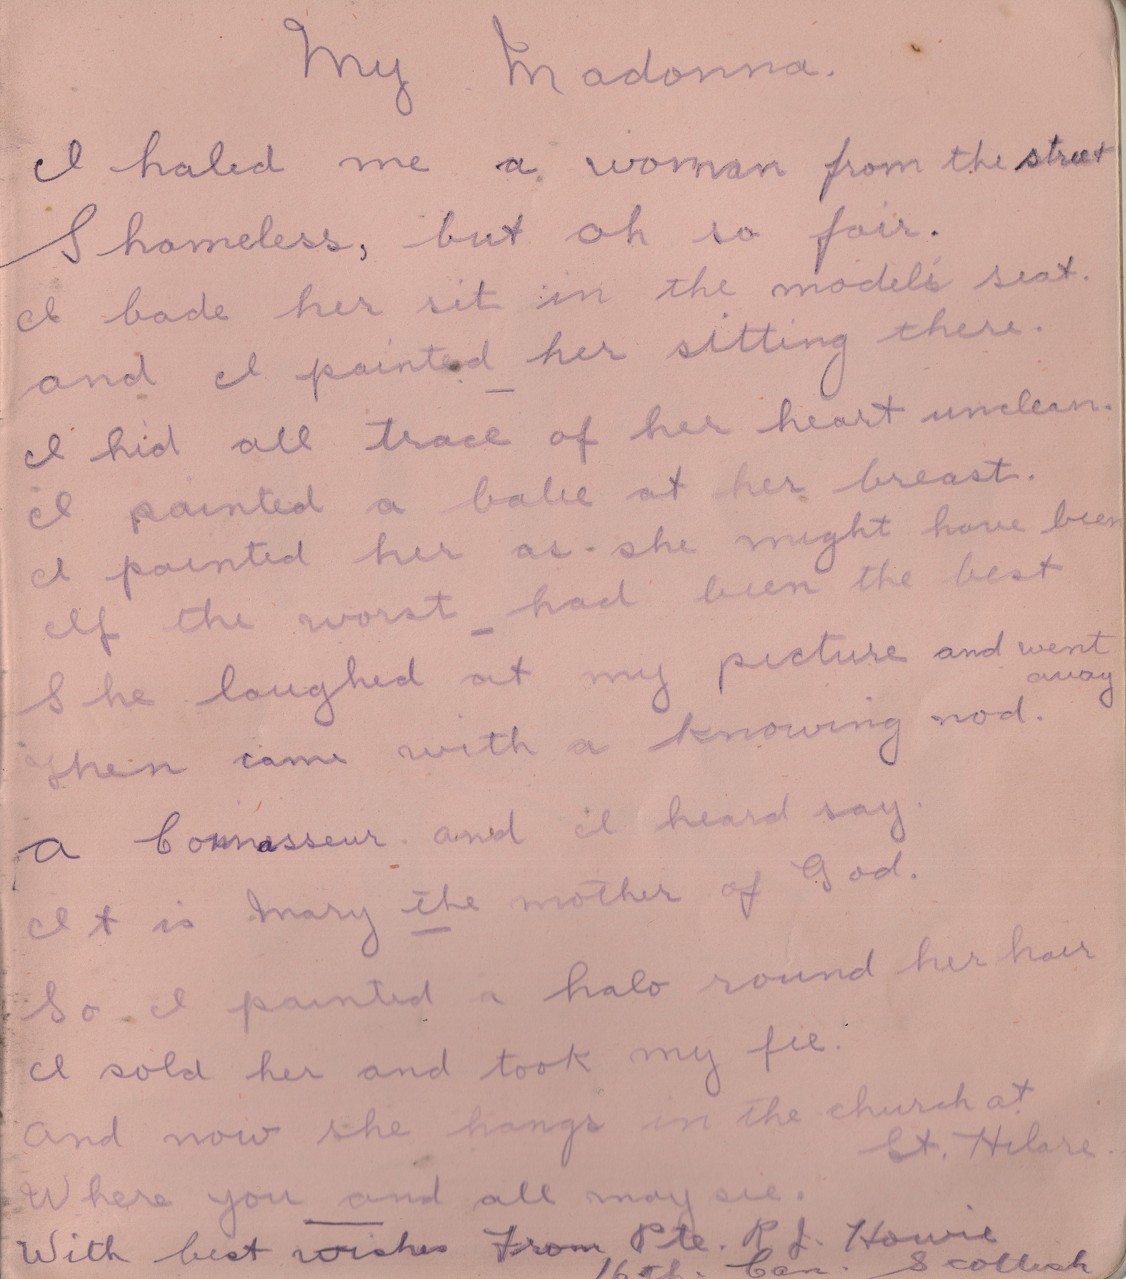 My Madonna.
I haled me a woman from the street
Shameless, but oh so fair.
I bade her sit in the model's seat.
and I painted her sitting there.
I hid all trace of her heart unclean.
I painted a babe at her breast.
I painted her as she might have been
If the worst had been the best
She laughed at my picture and went
away
Then came with a knowing nod.
a Connasseur and I heard say.
It is Mary the mother of God.
So I painted a halo round her hair
I sold her and took my fee.
And now she hangs in the church at
St. Hilare.
Where you and all may see.
With best wishes From Pte. R J. Howie
16th. Can. Scottish